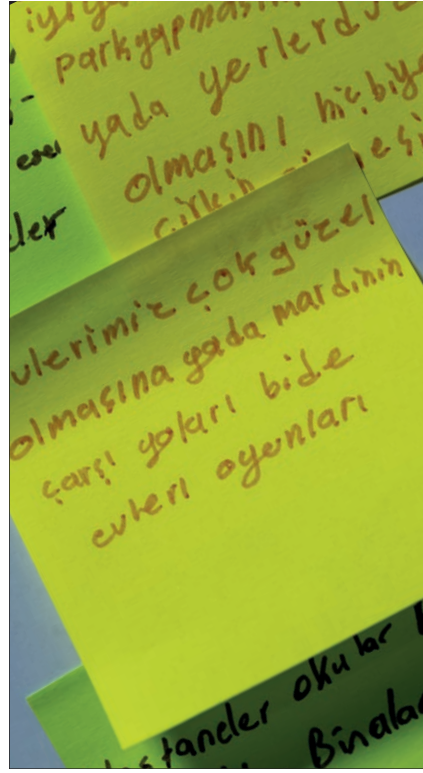 parkyapmasın
yada yerlerdu
olmasını hiçbiye
çirkin
eser
ler
vlerimiz çok güzel
olmasına yada mardinin
çarşı yoları bide
evleri oyunları
astaneler okular
Binalar